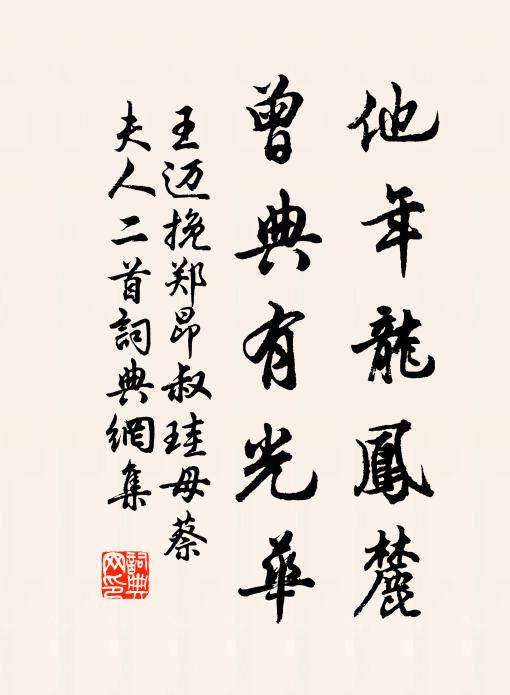 他年龍鳳麓
曾典有光華
王迈挽郑昂叔珪母蔡
夫人二首詞典網集
詞典網印